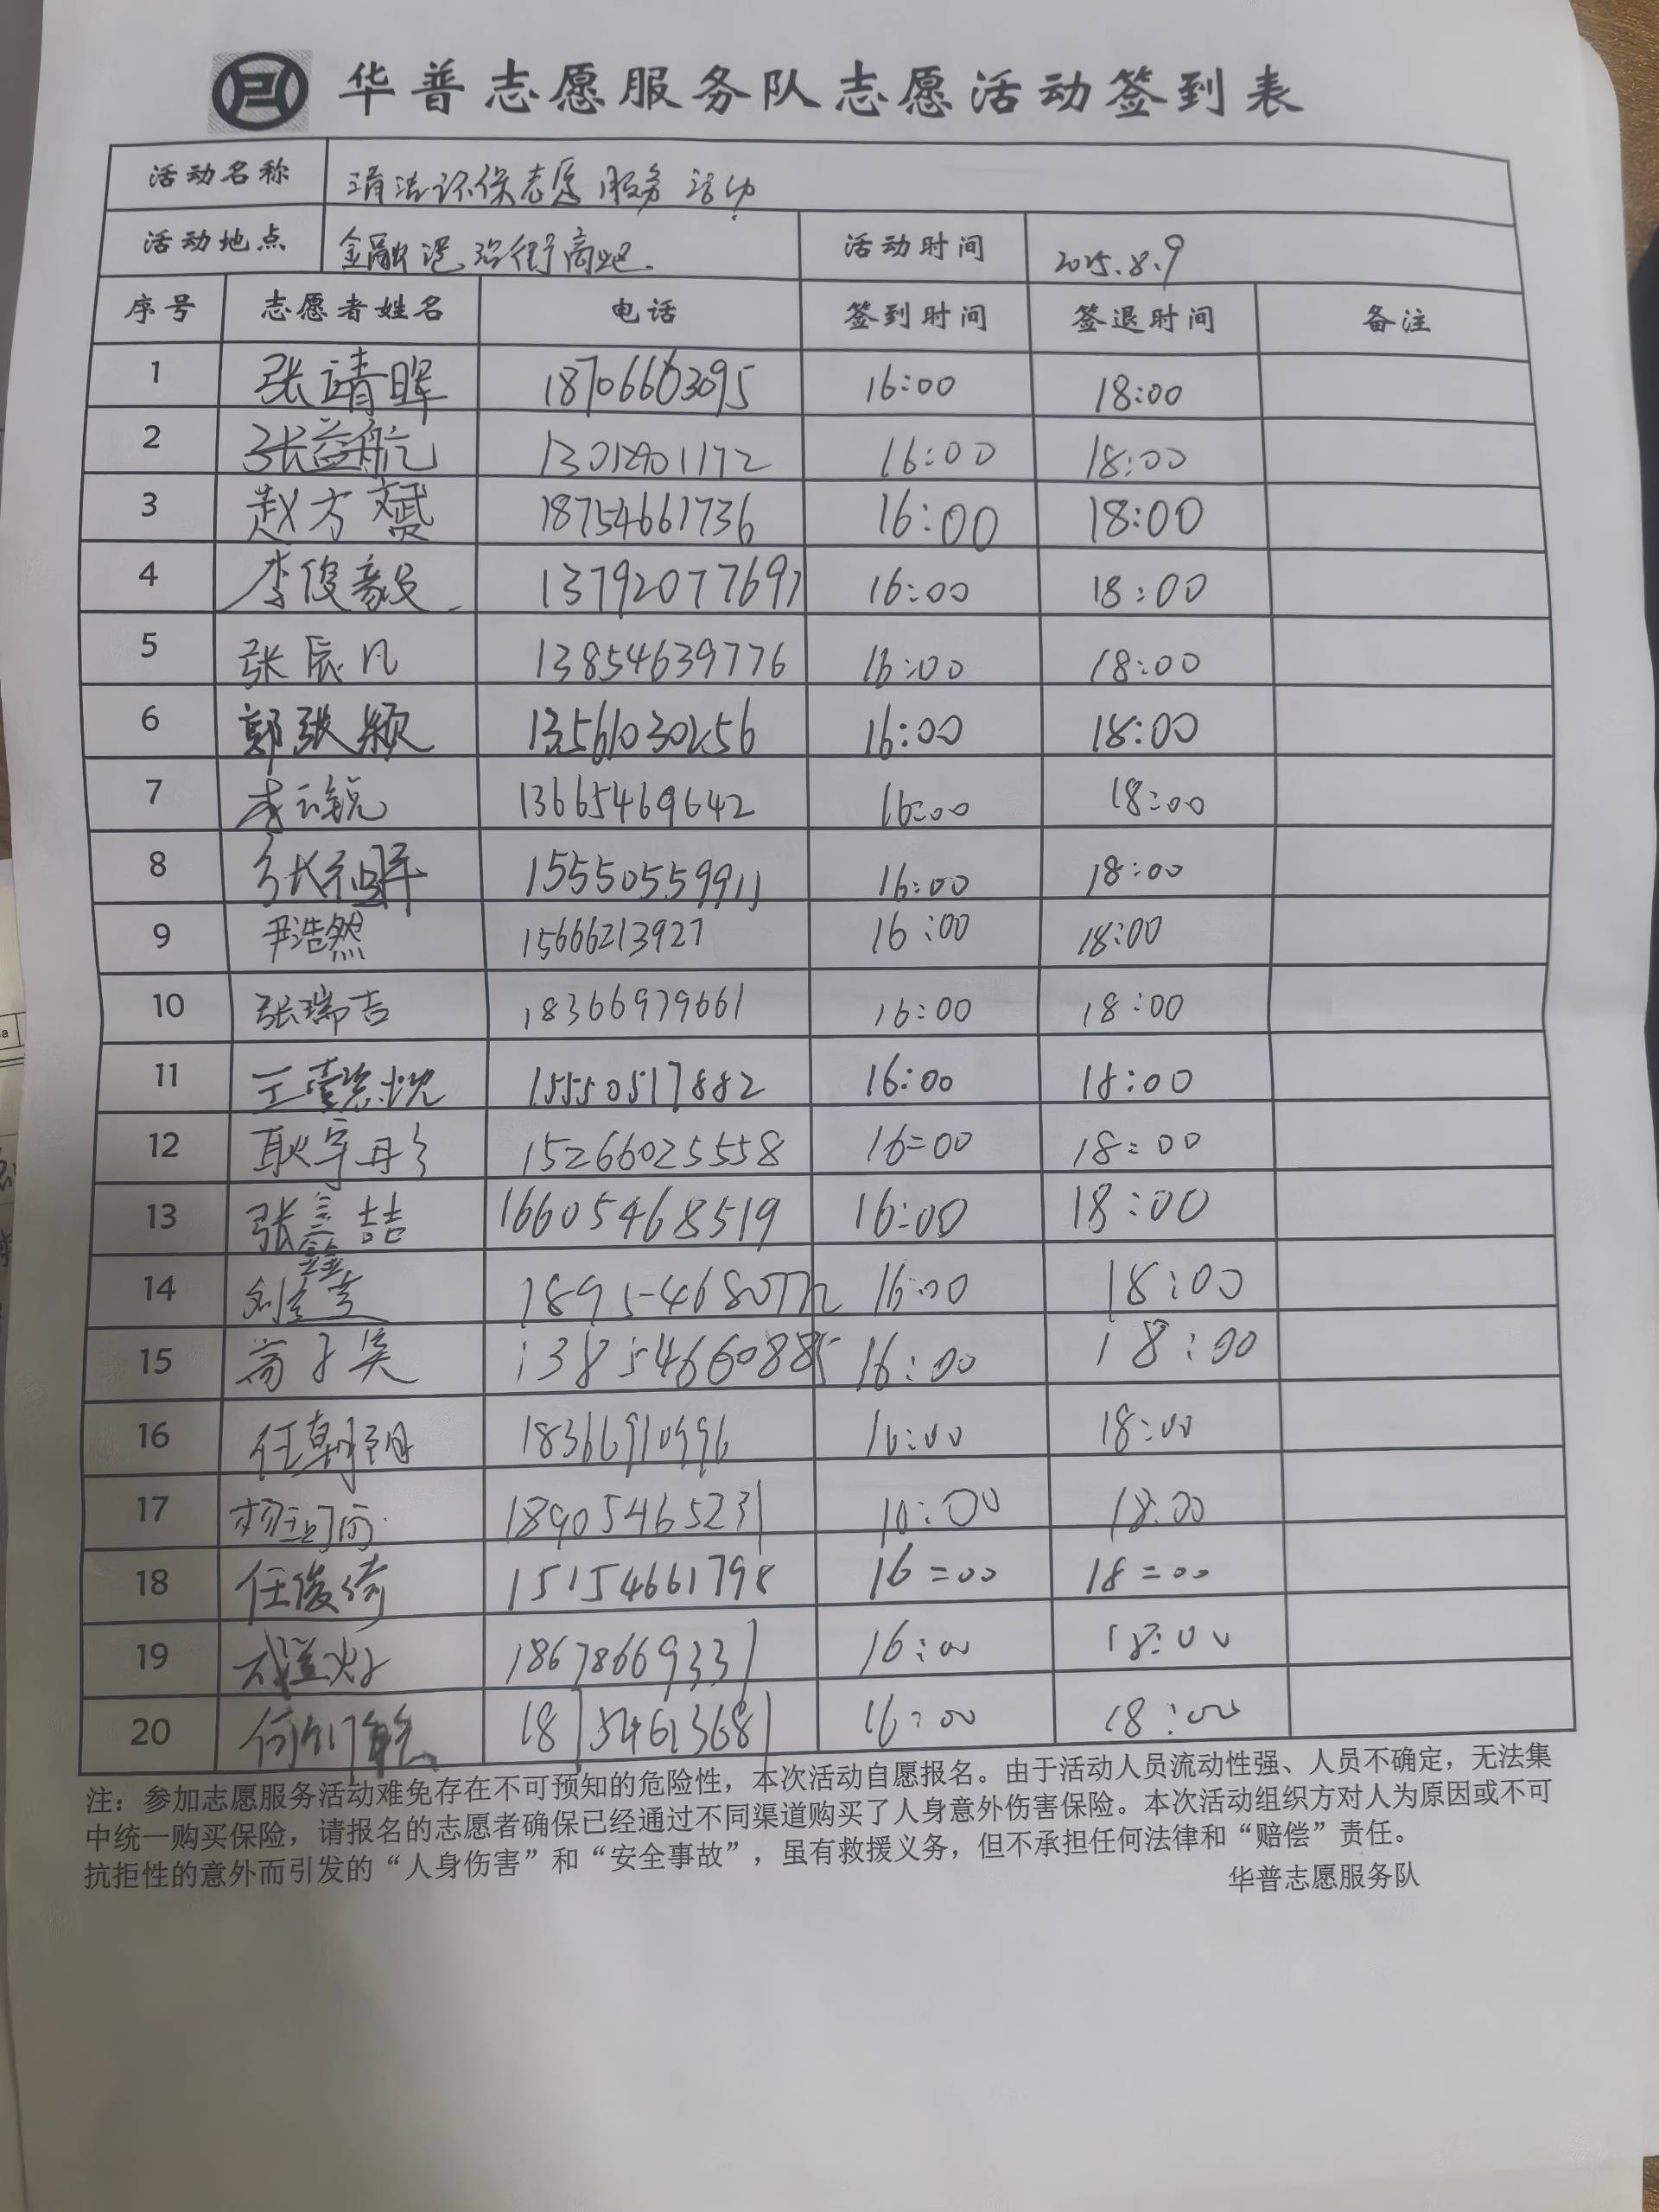 华普志愿服务队志愿活动签到表
活动名称 清洁环保志愿服务活动
活动地点 金融港沿街商地. 活动时间 2025.8.9
序号 志愿者姓名 电话 签到时间 签退时间 备注
1 张靖晖 18706663095 16:00 18:00
2 张益航 13012901172 16:00 18:00
3 赵方赟 18754661736 16:00 18:00
4 李俊毅 13792077697 16:00 18:00
5 张辰凡 13854639776 16:00 18:00
6 郭张颖 13561030256 16:00 18:00
7 李云锐 13665469642 16:00 18:00
8 张 15550559911 16:00 18:00
9 尹浩然 15666213927 16:00 18:00
10 张瑞吉 18366979661 16:00 18:00
11 王 15550517882 16:00 18:00
12 耿宇彤 15266025558 16:00 18:00
13 张喆 16605468519 16:00 18:00
14 刘 16:00 18:00
15 高子昊 13854660885 16:00 18:00
16 任朝阳 18366910996 16:00 18:00
17 18905465231 16:00 18:00
18 任俊绮 15154661798 16=00 18=00
19 18678669331 16:00 18:00
20 何 18 16:00 18:00
注：参加志愿服务活动难免存在不可预知的危险性，本次活动自愿报名。由于活动人员流动性强、人员不确定，无法集
中统一购买保险，请报名的志愿者确保已经通过不同渠道购买了人身意外伤害保险。本次活动组织方对人为原因或不可
抗拒性的意外而引发的“人身伤害”和“安全事故”，虽有救援义务，但不承担任何法律和“赔偿”责任。
华普志愿服务队